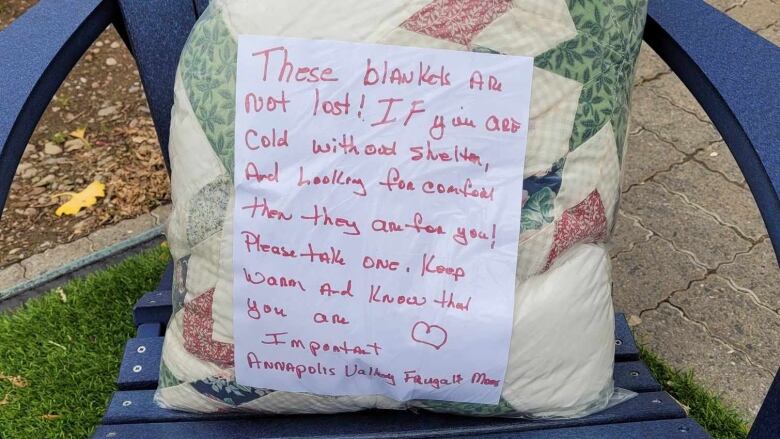 These blankets are
not lost! If you are
cold without shelter,
And Looking for comfort
then they are for you!
Please take one. Keep
warm and know that
you are
Important
Annapolis Valley Frugal Moms